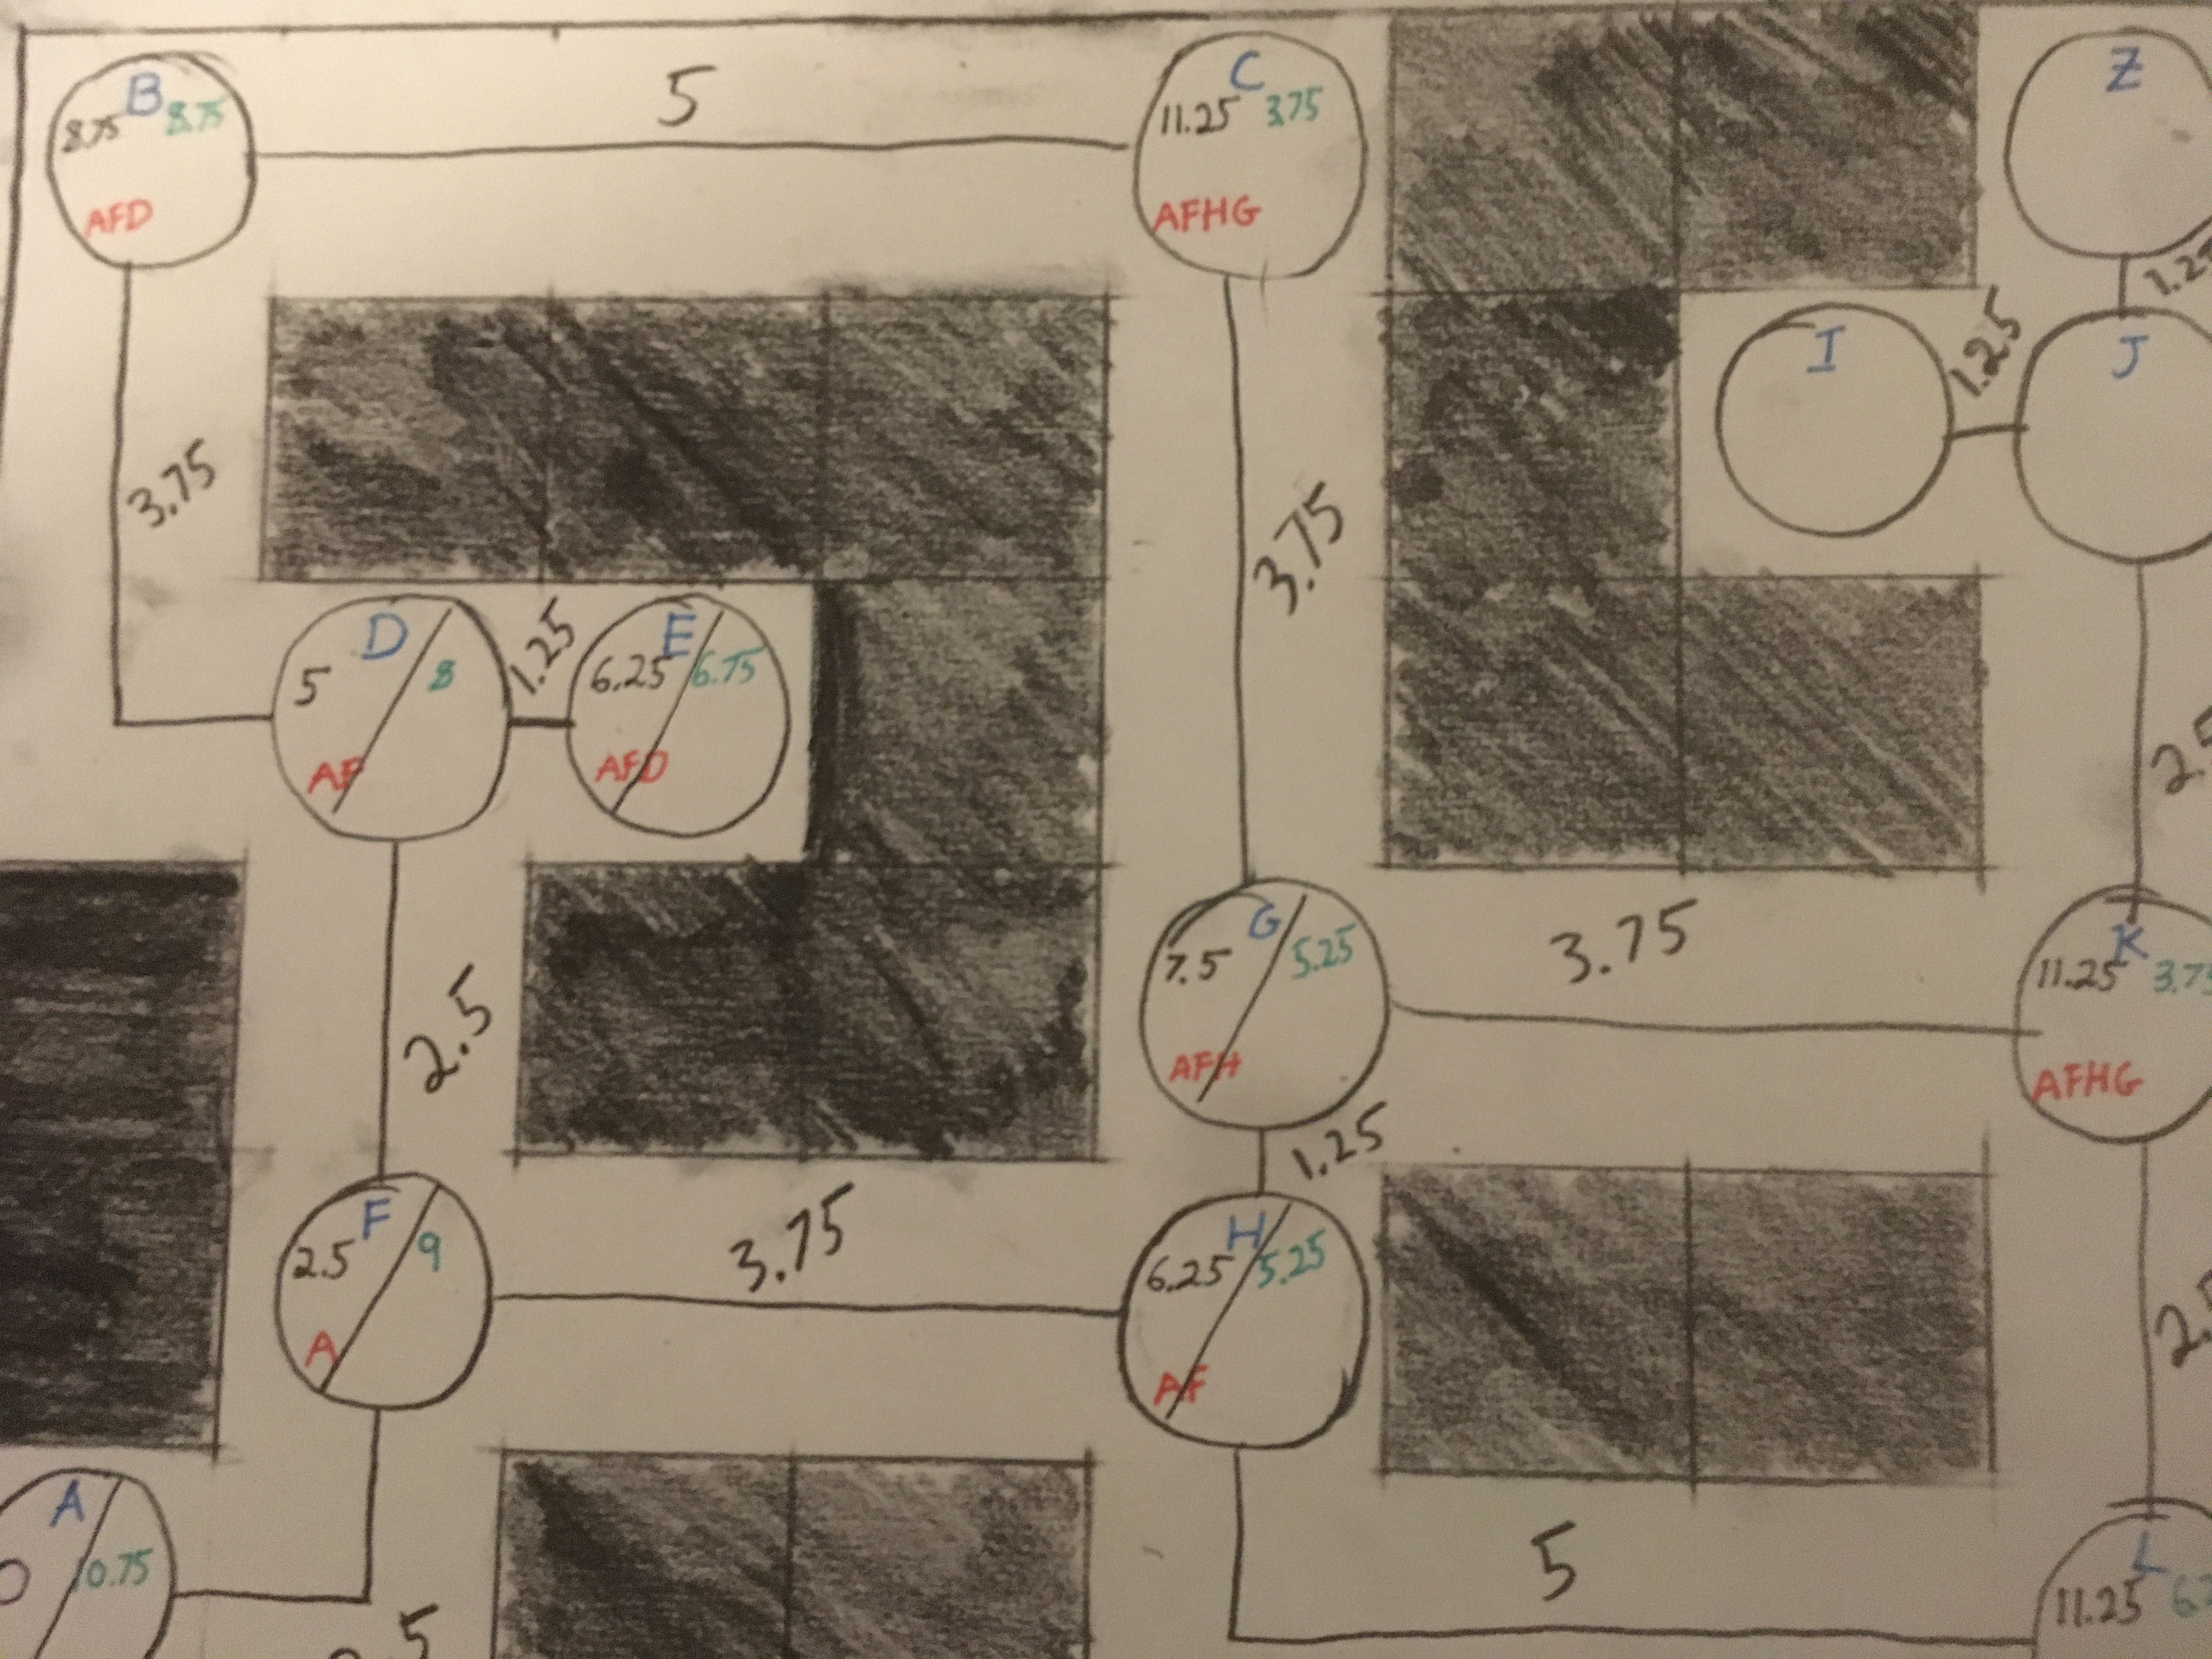 B
8.75 8.75
AFD
5
C
11.25 3.75
AFHG
Z
1.25
I
1.25
J
3.75
3.75
D
5 8
AF
1.25
E
6.25 6.75
AFD
2.5
G
7.5 5.25
AFH
3.75
K
11.25 3.75
AFHG
2.5
1.25
F
2.5 9
A
3.75
H
6.25 5.25
AF
A
0 10.75
5
L
11.25